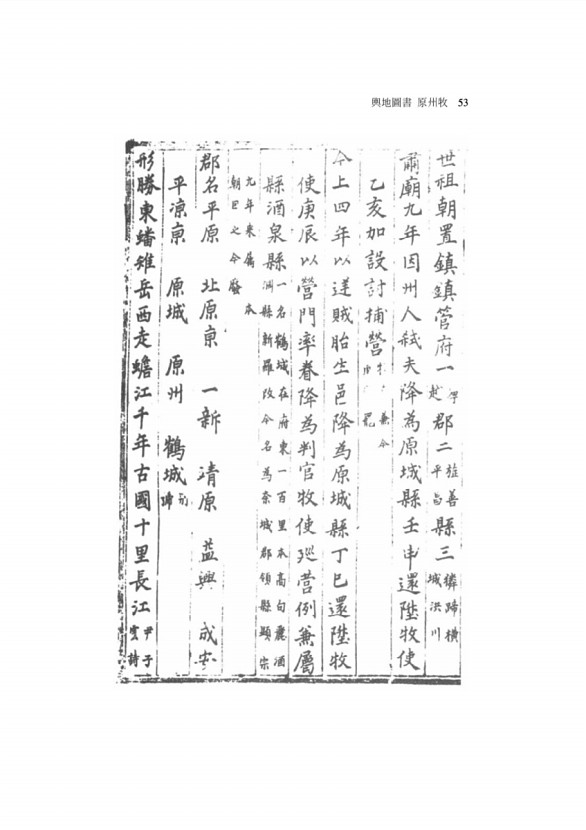 輿地圖書 原州牧 53
世祖朝置鎮鎮管府一郡二旌善平昌縣三麟蹄橫城洪川
肅廟九年因州人弑夫降為原城縣壬申還陞牧使
乙亥加設討捕營
今上四年以逆賊胎生邑降為原城縣丁巳還陞牧
使庚辰以營門率眷降為判官牧使巡營例兼屬
縣酒泉縣一名鶴城在府東一百里本高句麗酒淵縣新羅改今名為奈城郡領縣顯宗
九年來屬本朝因之今廢
郡名平原 北原京 一新 清原 益興 成安
平凉京 原城 原州 鶴城別號
形勝東蟠雉岳西走蟾江千年古國十里長江尹子雲詩